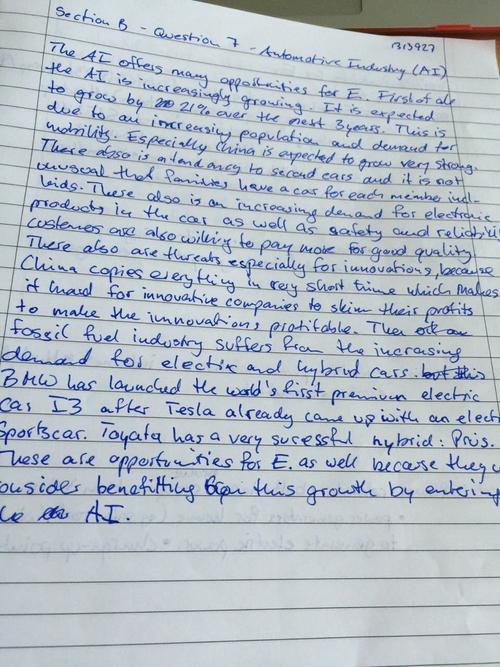 Section B - Question 7 - Automotive Industry (AI)
313927
The AI offers many opportunities for E. First of all
the AI is increasingly growing. It is expected
to grow by 21% over the next 3 years. This is
due to an increasing population and demand for
mobility. Especially China is expected to grow very strong.
There also is a tendancy to second cars and it is not
unusual that families have a car for each member incl.
kids. There also is an increasing demand for electronic
products in the car as well as safety and reliabili
Customers are also willing to pay more for good quality
There also are threats especially for innovations, because
China copies everything in very short time which makes
it hard for innovative companies to skim their profits
to make the innovations profitable. The
fossil fuel industry suffers from the increasing
demand for electric and hybrid cars. but this
BMW has launched the world's first premium electric
car I3 after Tesla already came up with an elect
Sportscar. Toyata has a very sucessful hybrid: Prius.
These are opportunities for E. as well because they c
onsider benefitting from this growth by entering
he AI.